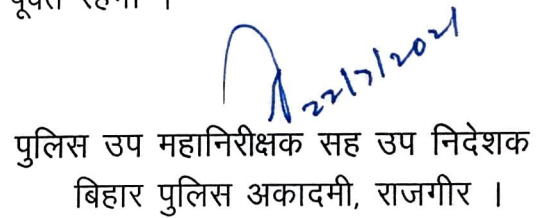 रहेगा ।
22/7/2021
पुलिस उप महानिरीक्षक सह उप निदेशक
बिहार पुलिस अकादमी, राजगीर ।